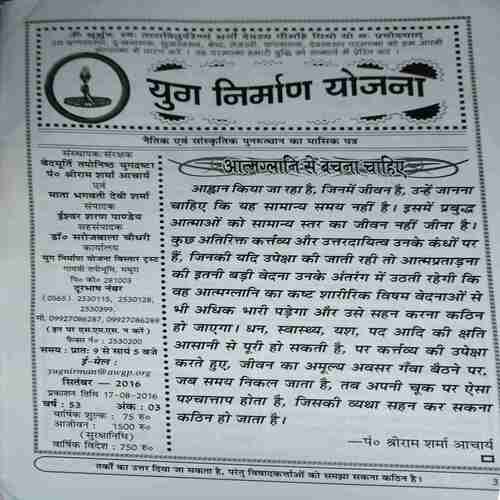 ॐ भूर्भुवः स्वः तत्सवितुर्वरेण्यं भर्गो देवस्य धीमहि धियो यो नः प्रचोदयात्
उस प्राणस्वरूप, दुःखनाशक, सुखस्वरूप, श्रेष्ठ, तेजस्वी, पापनाशक, देवस्वरूप परमात्मा को हम अपनी
अंतरात्मा में धारण करें । वह परमात्मा हमारी बुद्धि को सन्मार्ग में प्रेरित करे ।
युग निर्माण योजना
नैतिक एवं सांस्कृतिक पुनरुत्थान का मासिक पत्र
संस्थापक-संरक्षक
वेदमूर्ति तपोनिष्ठ युगद्रष्टा
पं० श्रीराम शर्मा आचार्य
एवं
माता भगवती देवी शर्मा
संपादक
ईश्वर शरण पाण्डेय
सहसंपादक
डॉ० सरोजबाला चौधरी
कार्यालय
युग निर्माण योजना विस्तार ट्रस्ट
गायत्री तपोभूमि, मथुरा
पि० को० 281003
दूरभाष नंबर
(0565) 2530115, 2530128,
2530399.
मो. 09927086287, 09927086289
(इन पर एस.एम.एस. न करें)
फैक्स नं० : 2530200
समय : प्रातः 9 से सायं 5 बजे
ई-मेल :
yugnirman@awgp.org
सितंबर — 2016
प्रकाशन तिथि 17-08-2016
वर्ष : 53 अंक : 03
वार्षिक शुल्क : 75 रु०
आजीवन : 1500 रु०
(सुरक्षानिधि)
वार्षिक विदेश : 750 रु०
आत्मग्लानि से बचना चाहिए
आह्वान किया जा रहा है, जिनमें जीवन है, उन्हें जानना
चाहिए कि यह सामान्य समय नहीं है। इसमें प्रबुद्ध
आत्माओं को सामान्य स्तर का जीवन नहीं जीना है।
कुछ अतिरिक्त कर्त्तव्य और उत्तरदायित्व उनके कंधों पर
हैं, जिनकी यदि उपेक्षा की जाती रही तो आत्मप्रताड़ना
की इतनी बड़ी वेदना उनके अंतरंग में उठती रहेगी कि
वह आत्मग्लानि का कष्ट शारीरिक विषम वेदनाओं से
भी अधिक भारी पड़ेगा और उसे सहन करना कठिन
हो जाएगा। धन, स्वास्थ्य, यश, पद आदि की क्षति
आसानी से पूरी हो सकती है, पर कर्त्तव्य की उपेक्षा
करते हुए, जीवन का अमूल्य अवसर गँवा बैठने पर,
जब समय निकल जाता है, तब अपनी चूक पर ऐसा
पश्चात्ताप होता है, जिसकी व्यथा सहन कर सकना
कठिन हो जाता है।
—पं० श्रीराम शर्मा आचार्य
तर्कों का उत्तर दिया जा सकता है, परंतु विवादकर्त्ताओं को समझा सकना कठिन है।
3